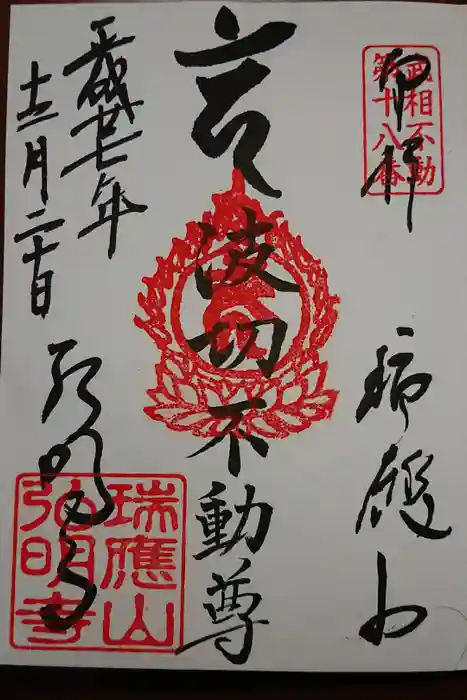 奉拝
武相不動
第十八番
瑞應山
波切不動尊
平成廿七年
十二月二十日
弘明寺
瑞應山
弘明寺